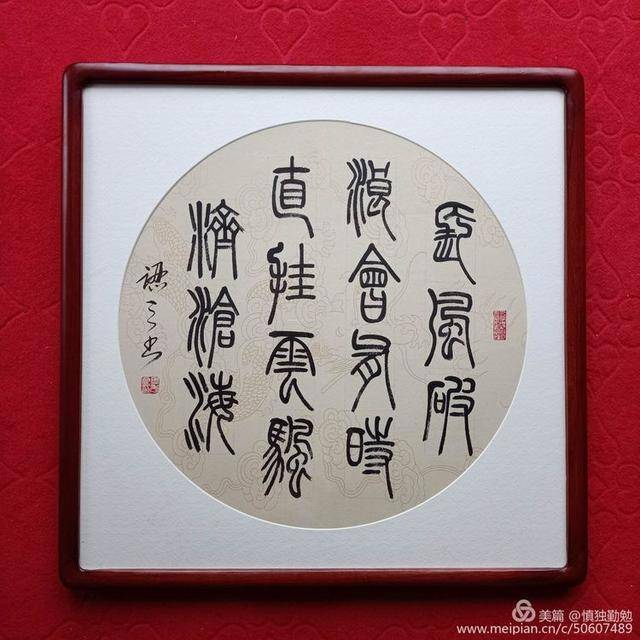 長風破
浪會有時
直挂雲颿
濟滄海
之书
美篇 @慎独勤勉
www.meipian.cn/c/50607489